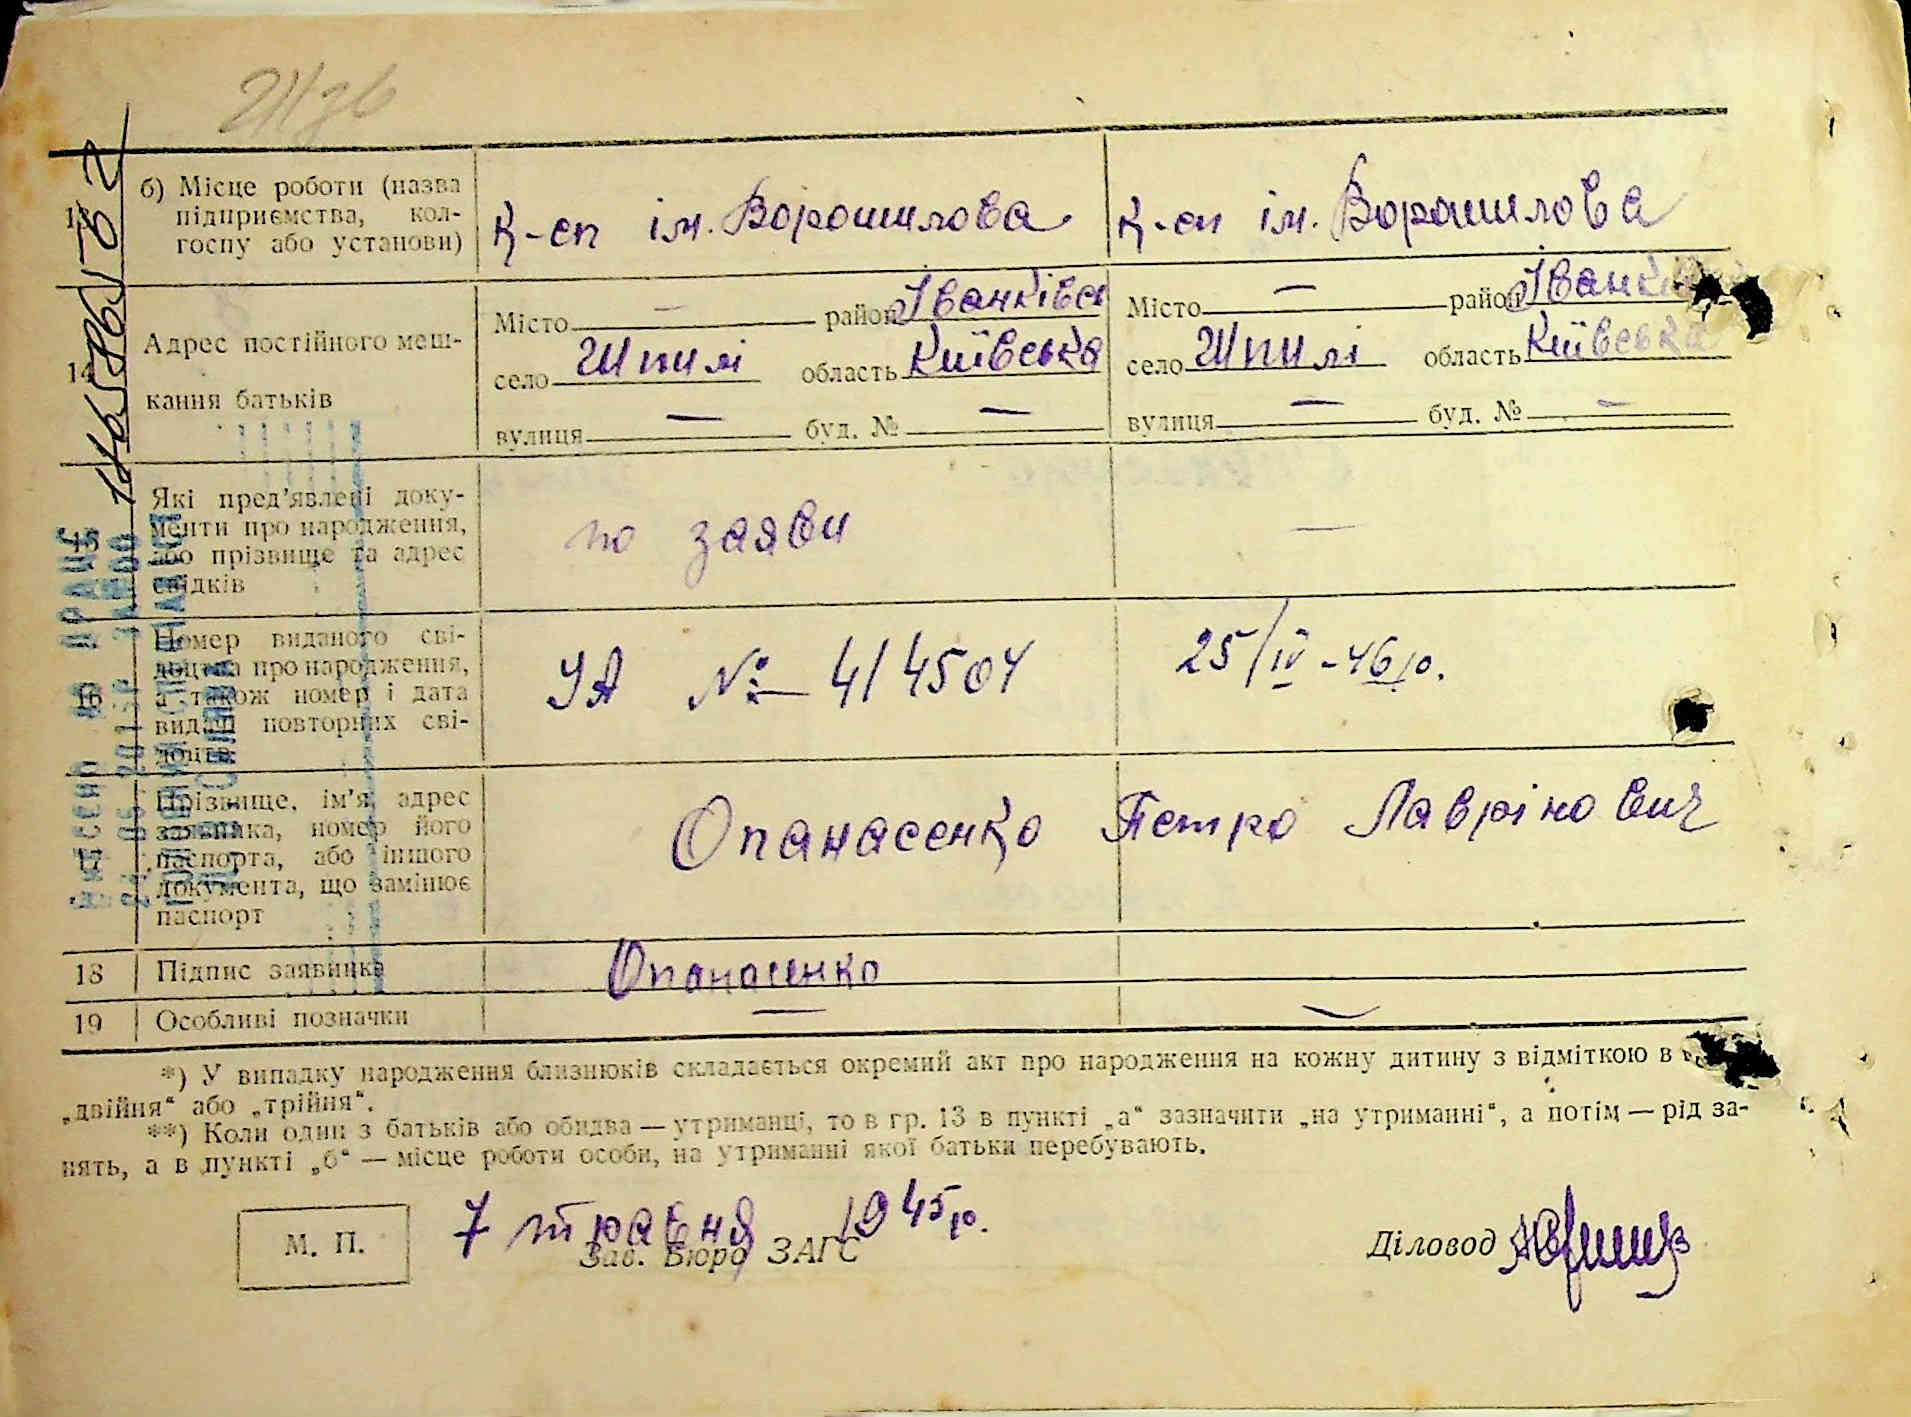 13
б) Місце роботи (назва
підприємства, кол-
госпу або установи)
К-сп ім. Ворошилова
К-сп ім. Ворошилова
14
Адрес постійного меш-
кання батьків
Місто — район Іванківськ
село Шпилі область Київська
вулиця — буд. № —
Місто — район Іванків
село Шпилі область Київська
вулиця — буд. № —
15
Які пред'явлені доку-
менти про народження,
або прізвище та адрес
свідків
по заяви
—
16
Номер виданого сві-
доцтва про народження,
а також номер і дата
видачі повторних сві-
доцтв
УА № 414504
25/IV-46 р.
17
Прізвище, ім'я, адрес
заявника, номер його
паспорта, або іншого
документа, що замінює
паспорт
Опанасенко Петро Лаврінович
18
Підпис заявника
Опанасенко
19
Особливі позначки
—
—
*) У випадку народження близнюків складається окремий акт про народження на кожну дитину з відміткою в
„двійня“ або „трійня“.
**) Коли один з батьків або обидва — утриманці, то в гр. 13 в пункті „а“ зазначити „на утриманні“, а потім — рід за-
нять, а в пункті „б“ — місце роботи особи, на утриманні якої батьки перебувають.
М. П.
7 травня 1945 р.
Зав. Бюро ЗАГС
Діловод